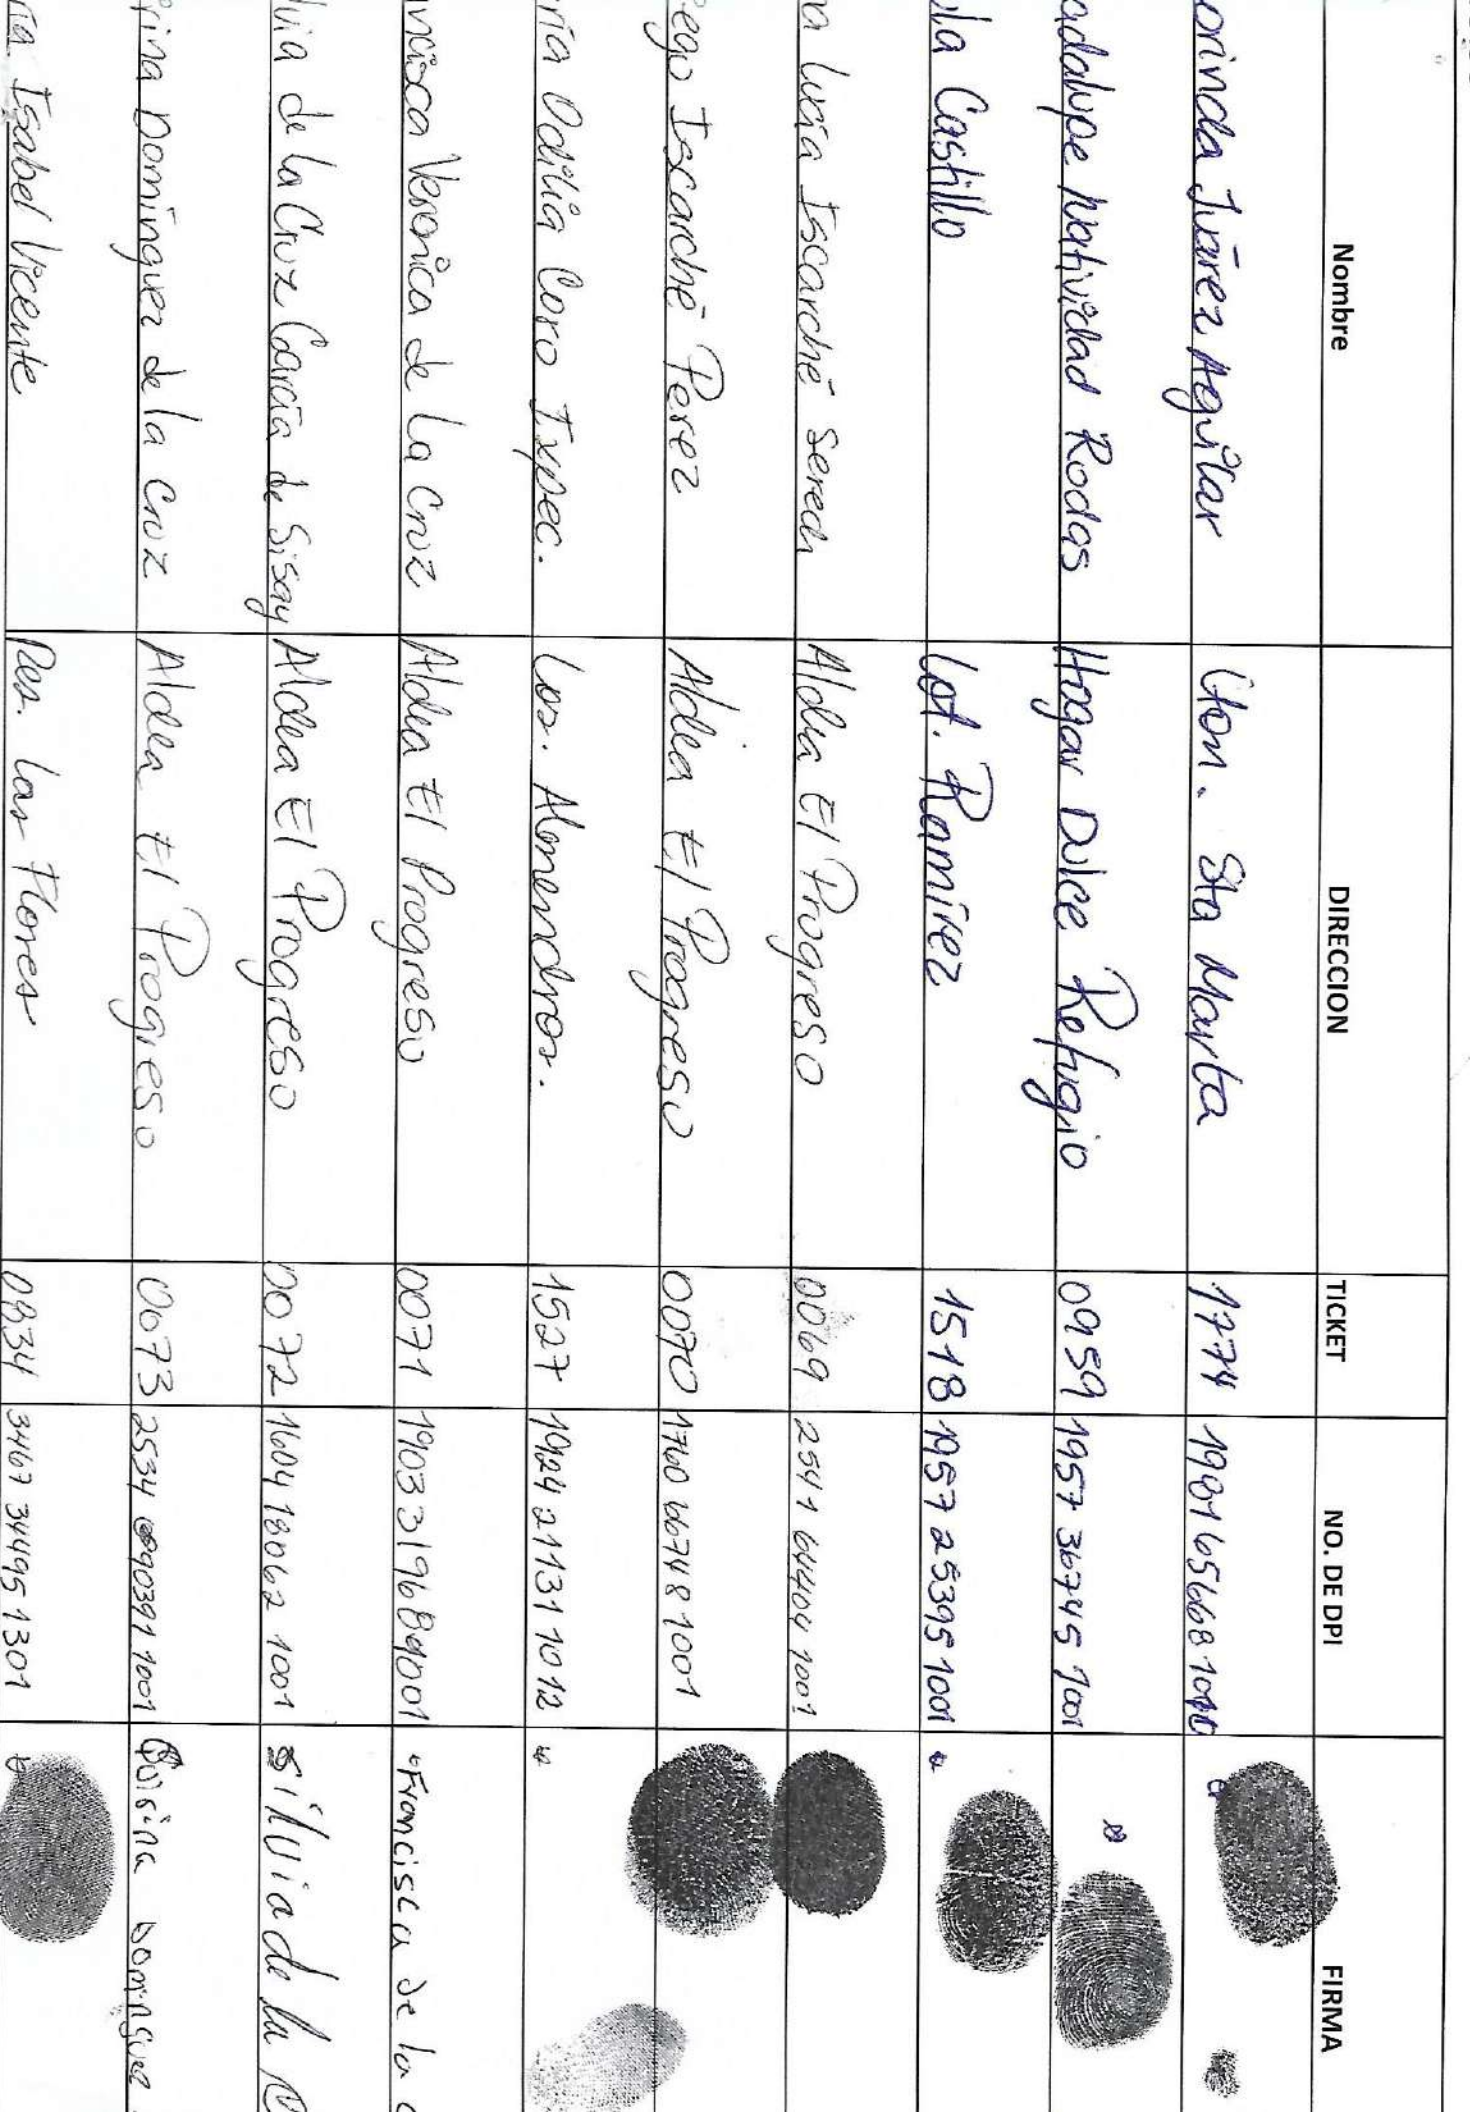 Nombre DIRECCION TICKET NO. DE DPI FIRMA
orinda Juárez Aguilar Com. Sta Marta 1774 1981 65668
adalupe Natividad Rodas Hogar Dulce Refugio 0959 1957 36745 1001
la Castillo Lot. Ramírez 1518 1957 25395 1001
a Lucía Iscarché Serech Aldea El Progreso 0069 2541 64404 1001
ego Iscarché Perez Aldea El Progreso 0070 1760 66748 1001
ría Odilia Coro Ixpec. Los. Almendros. 1527 1924 21131 1012
ncisca Veronica de La Cruz Aldea El Progreso 0071 1903 31968 1001 Francisca de la c
lvia de la Cruz García de Sisay Aldea El Progreso 0072 1604 18062 1001 Silvia de la C
irina Domínguez de la Cruz Aldea El Progreso 0073 2534 90391 1001 Quirina Domingue
ria Isabel Vicente Res. Las Flores 0834 3467 34495 1301